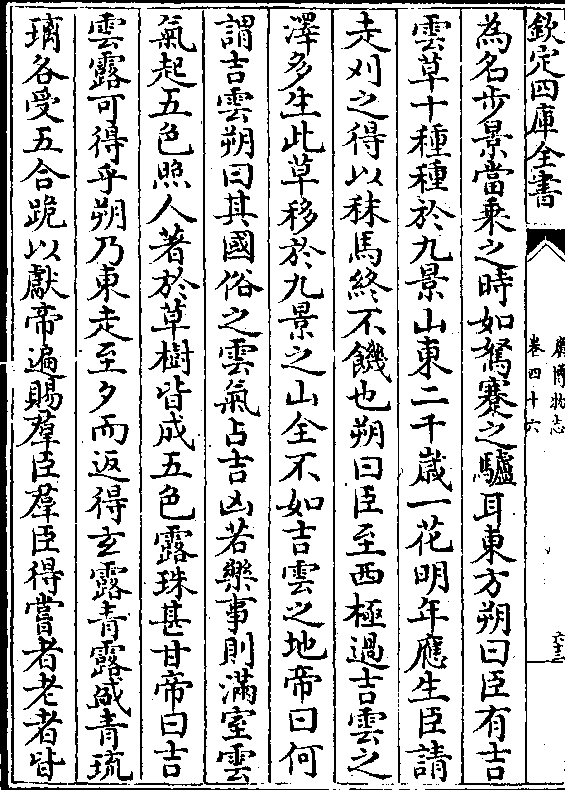 欽定四庫全書
廣博物志
卷四十六
為名步景當乘之時如駑蹇之驢耳東方朔曰臣有吉
雲草十種種於九景山東二千歲一花明年應生臣請
走刈之得以秣馬終不饑也朔曰臣至西極過吉雲之
澤多生此草移於九景之山全不如吉雲之地帝曰何
謂吉雲朔曰其國俗之雲氣占吉凶若樂事則滿室雲
氣起五色照人著於草樹皆成五色露珠甚甘帝曰吉
雲露可得乎朔乃東走至夕而返得玄露青露盛青琉
璃各受五合跪以獻帝遍賜羣臣羣臣得嘗者老者皆